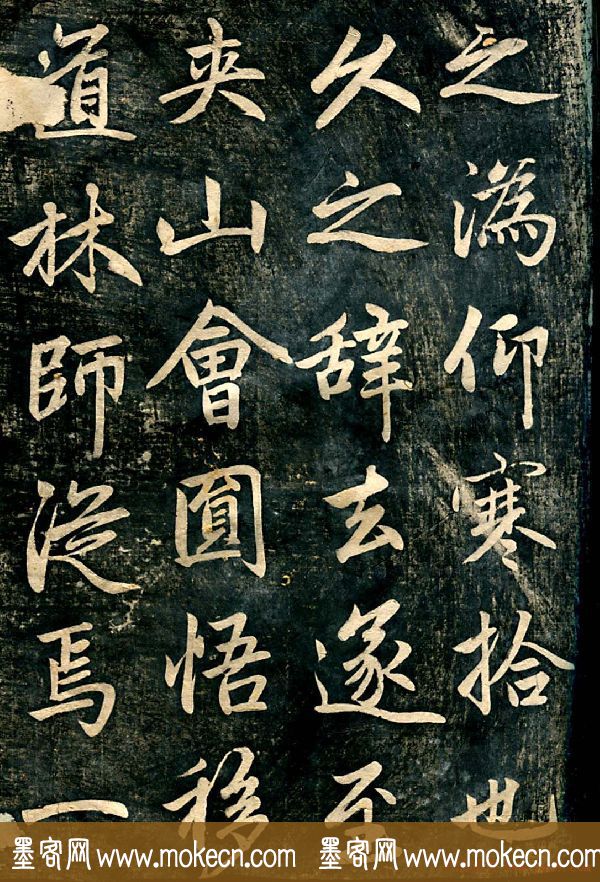 之溈仰寒拾也
久之辞去遂至
夹山會圓悟移
道林師從焉一
墨客网 www.mokecn.com 墨客网 www.mokecn.com